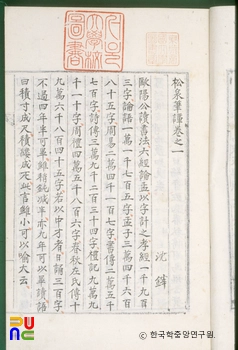 松泉筆譚卷之一
沈鋅
歐陽公讀書法六經論孟以字計之孝經一千九百
三字論語一萬一千七百五字孟子三萬四千六百
八十五字周易二萬四千一百七字書傳二萬五千
七百字詩傳三萬九千二百三十四字禮記九萬九
千一十字周禮四萬五千八百六字春秋左氏傳十
九萬六千八百四十五字若以中才者日誦三百字
不過四年半可畢雖稍鈍減半亦九年可以畢讀語
曰積寸成尺積成疋此言雖小可以喻大云
ⓒ 한국학중앙연구원